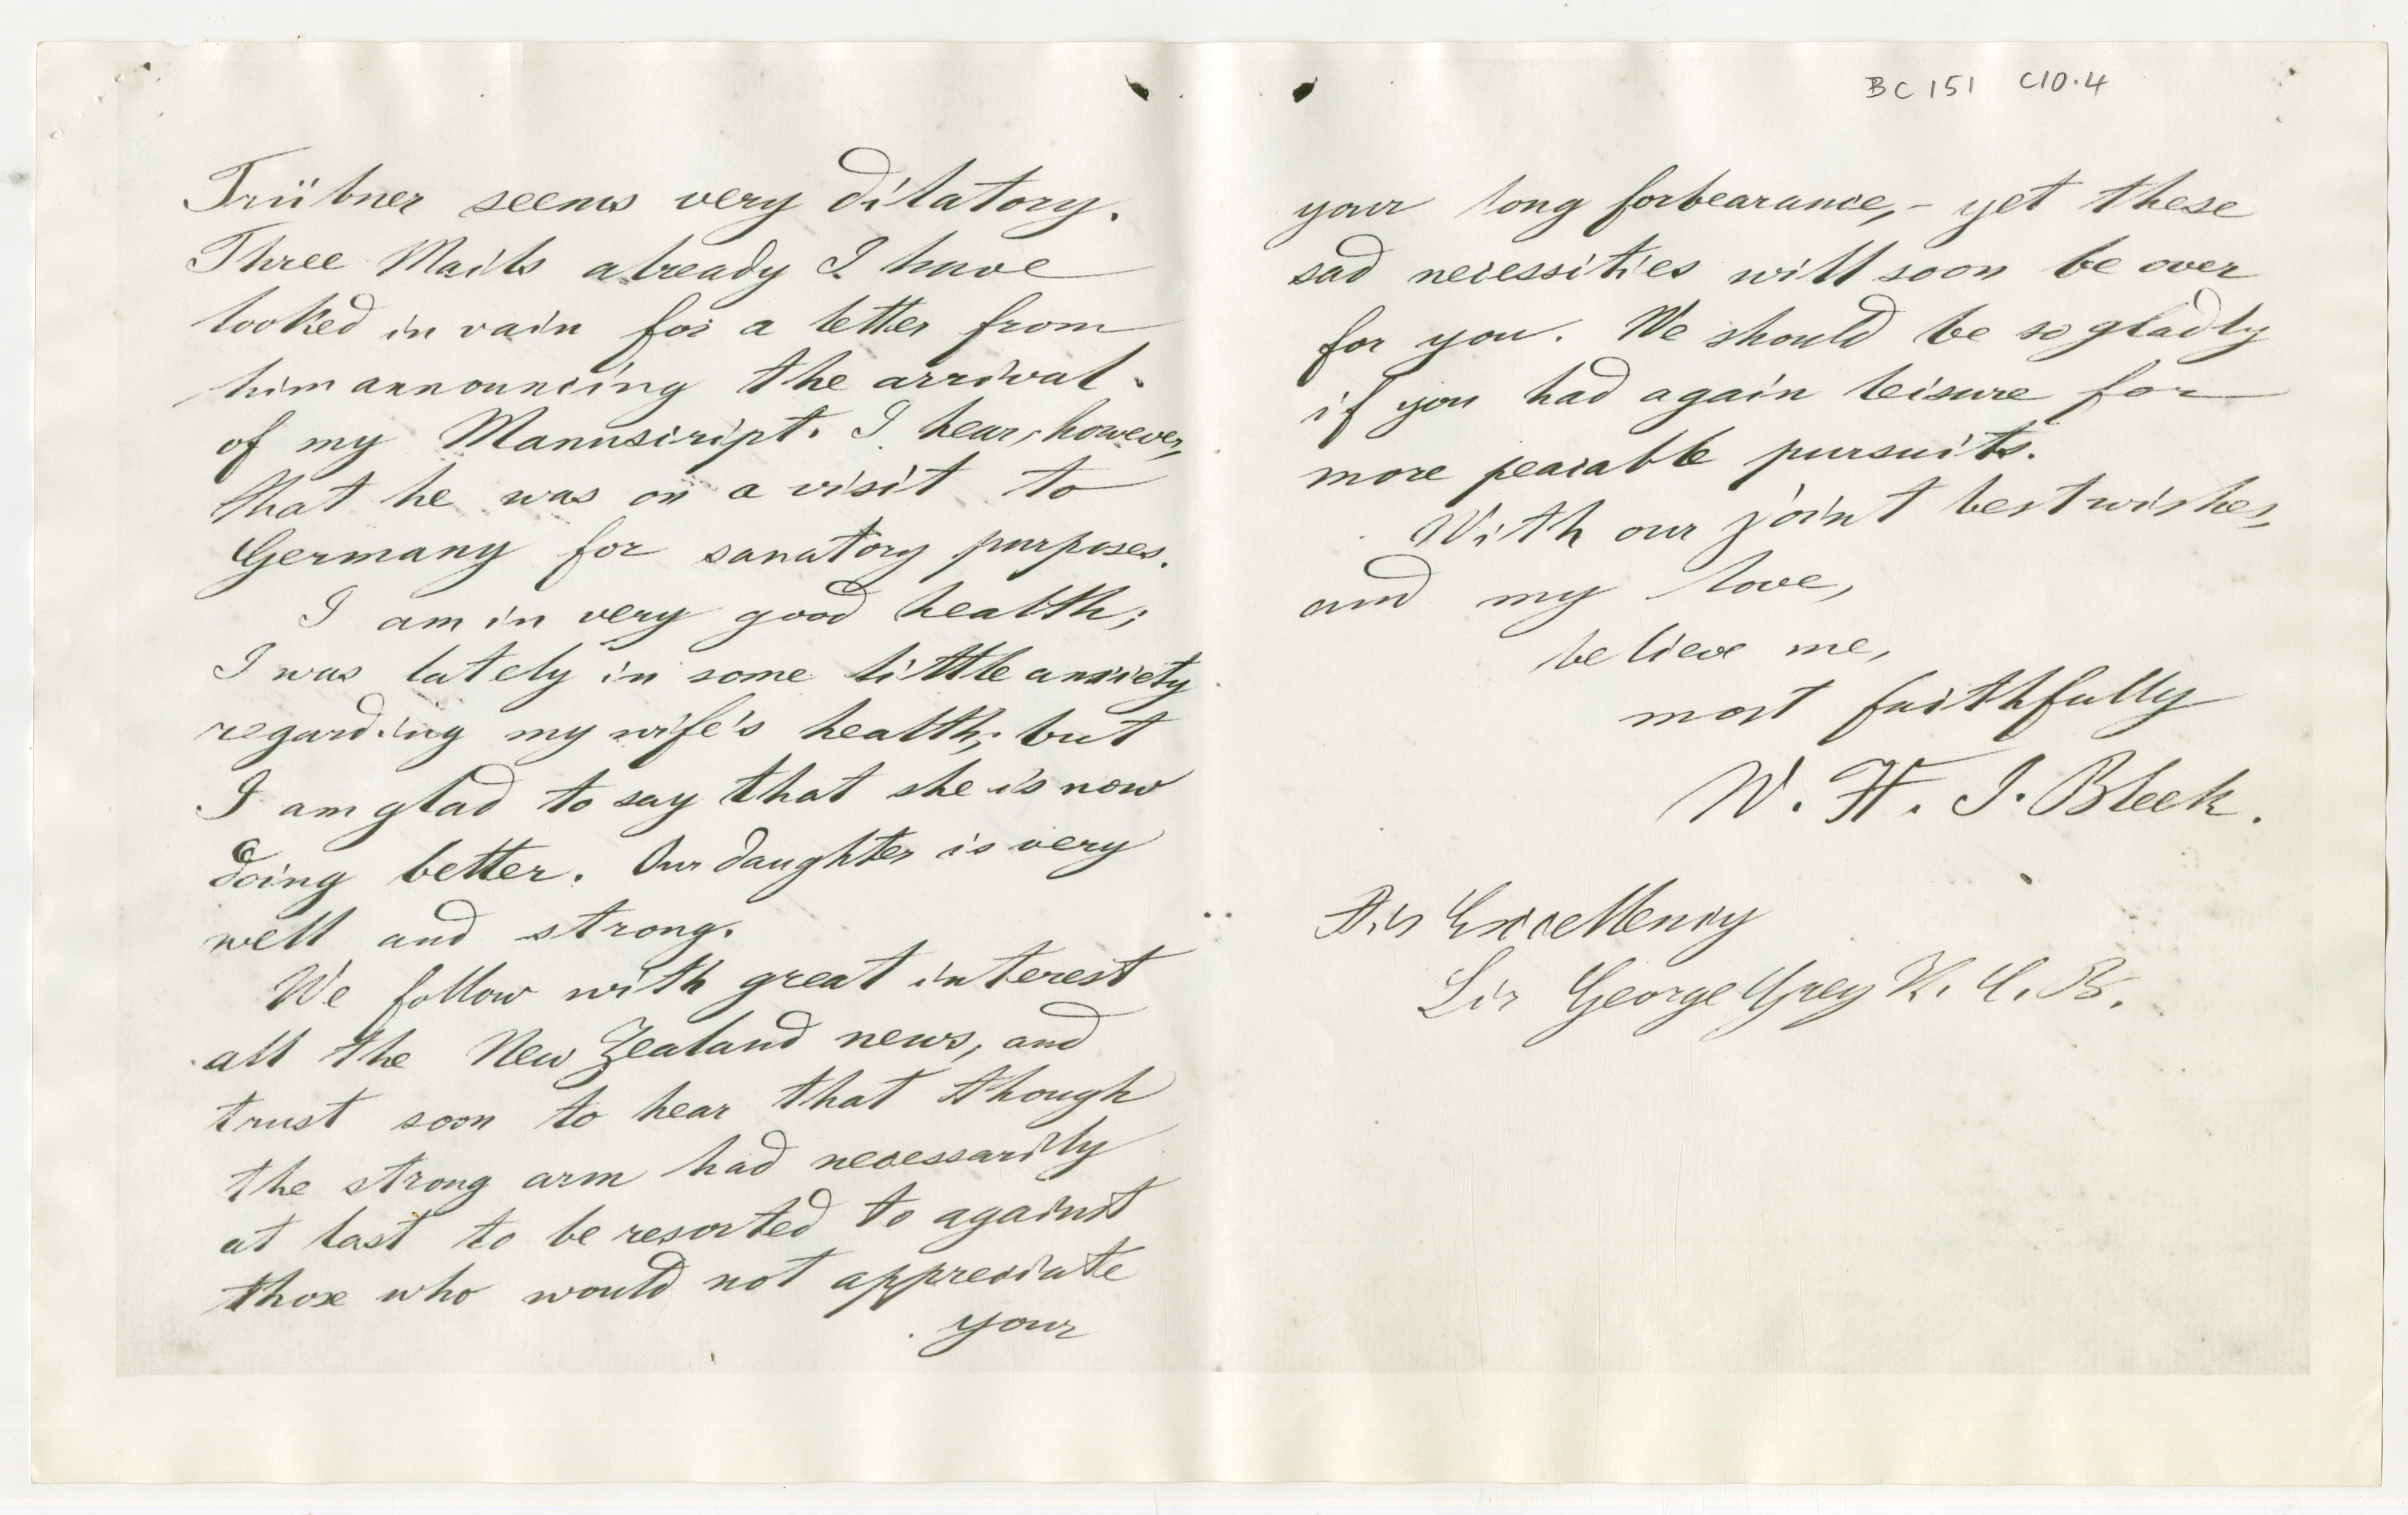 Trübner seems very dilatory.
Three Mails already I have
looked in vain for a letter from
him announcing the arrival
of my Manuscript. I hear, however,
that he was on a visit to
Germany for sanatory purposes.
I am in very good health;
I was lately in some little anxiety
regarding my wife's health; but
I am glad to say that she is now
doing better. Our daughter is very
well and strong.
We follow with great interest
all the New Zealand news, and
trust soon to hear that though
the strong arm had necessarily
at last to be resorted to against
those who would not appreciate
your
BC 151 C10.4
your long forbearance, - yet these
sad necessities will soon be over
for you. We should be so gladly
if you had again leisure for
more peacable pursuits.
With our joint best wishes,
and my love,
believe me,
most faithfully
W. H. I. Bleek.
His Excellency
Sir George Grey K. C. B.